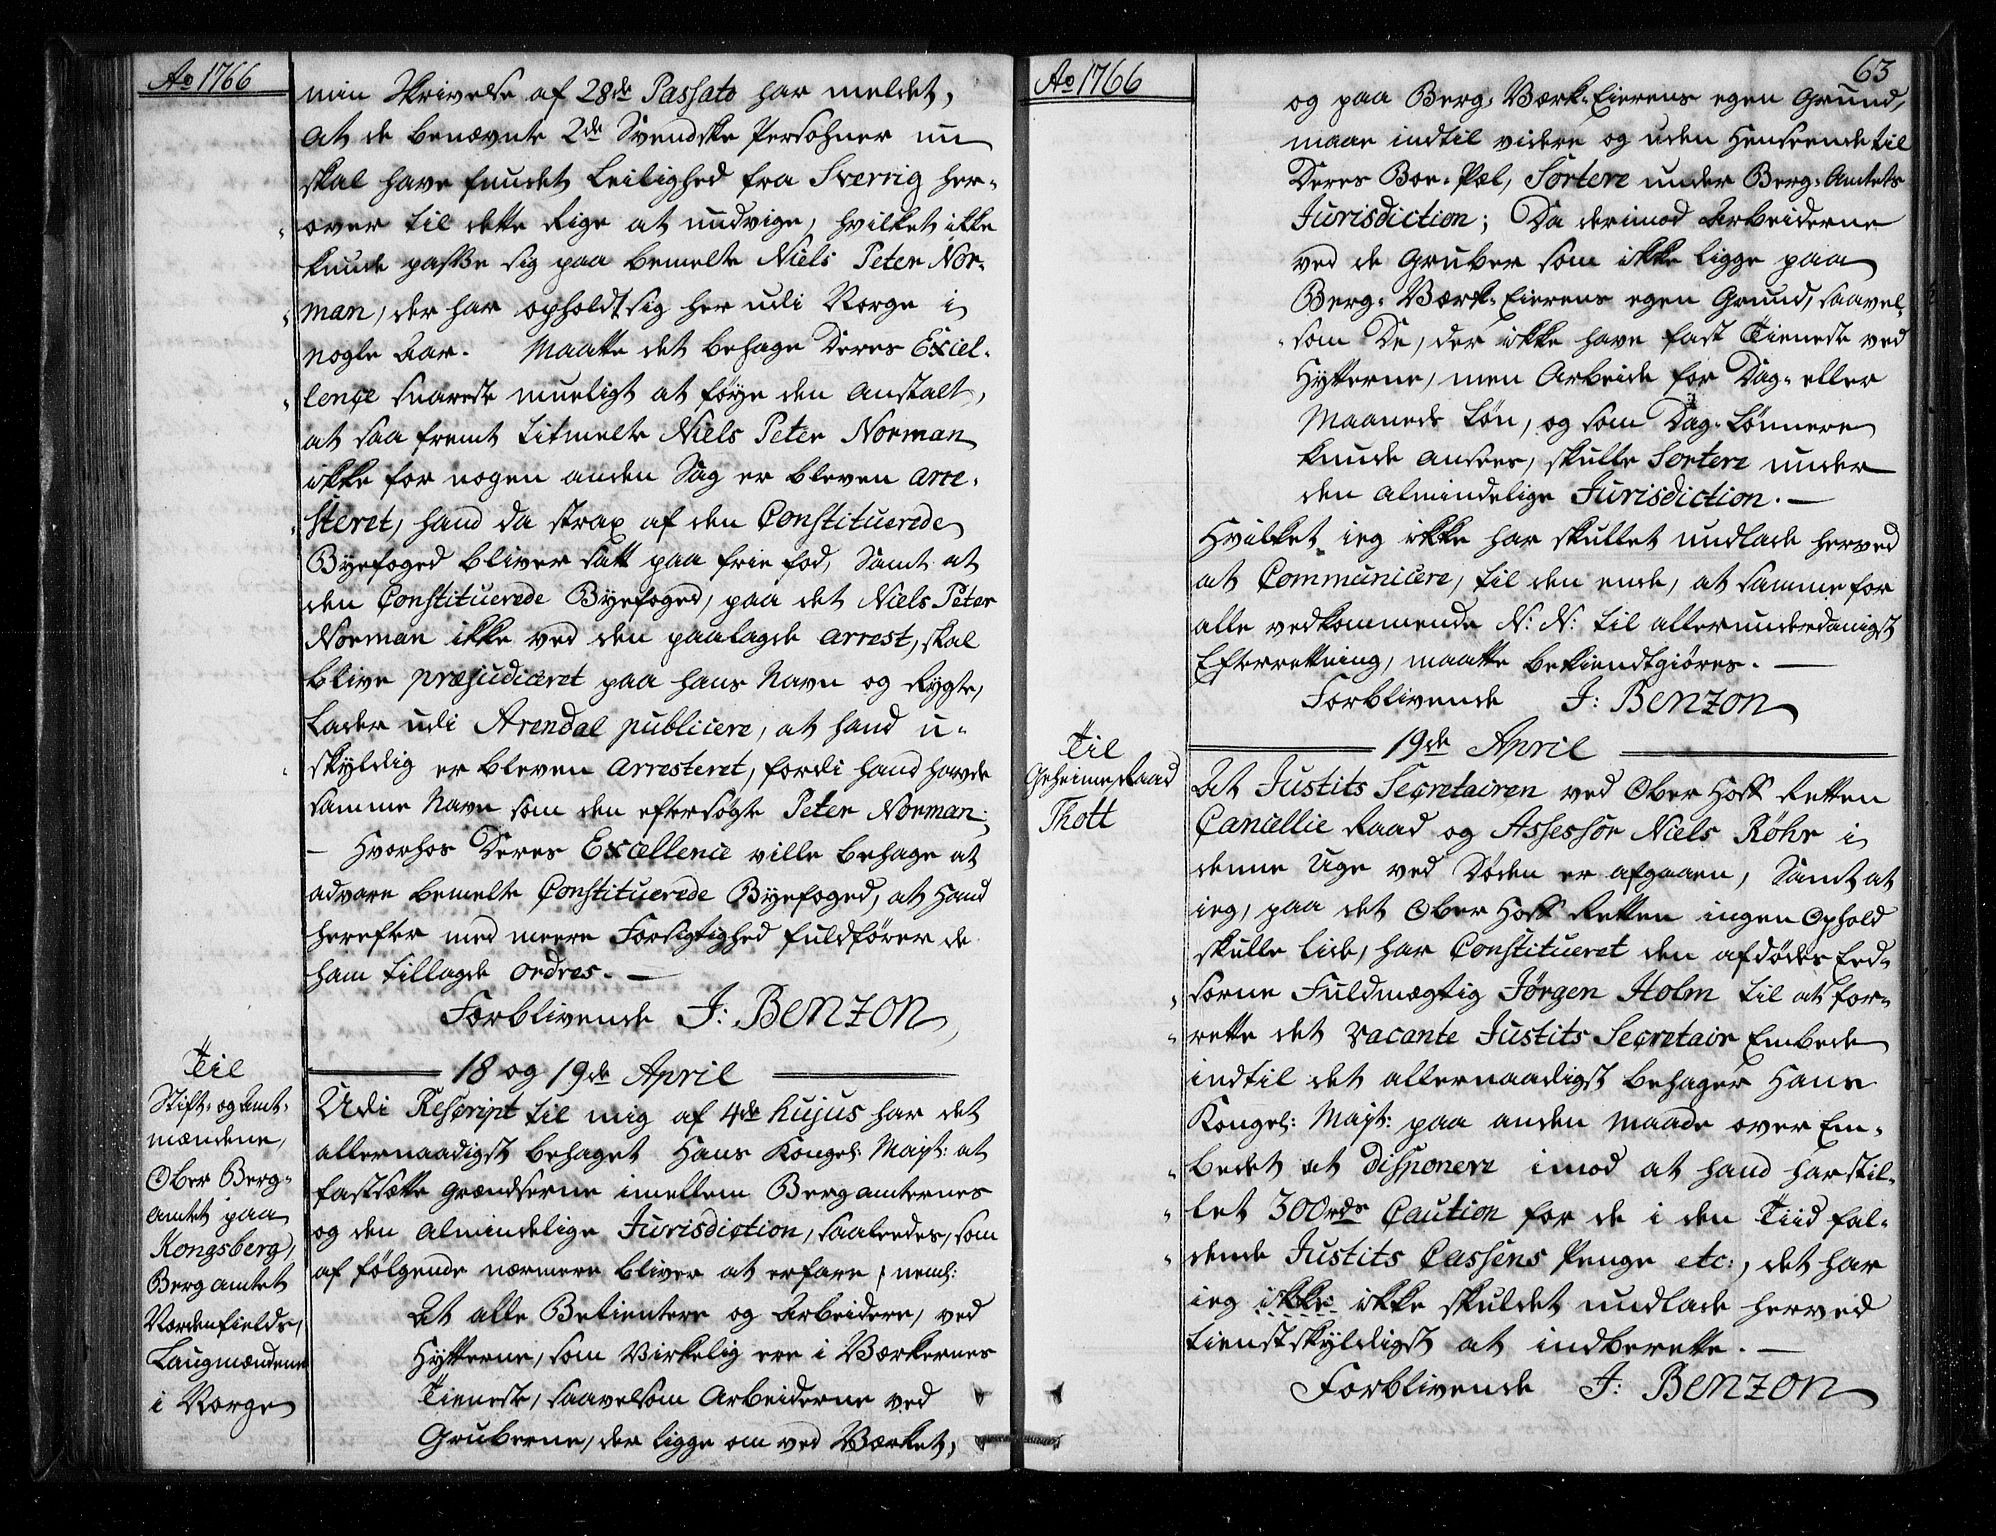 Ao 1766
min Skrivelse af 28de Passato har meldet,
at de benævnte 2de Svendske Persohner nu
skal have fundet Leilighed fra Sverrig her-
over til dette Rige at undvige, hvilket ikke
kunde passe sig paa bemelte Niels Peter Nor-
man, der har opholdt sig her udi Norge i
nogle Aar. Maatte det behage Deres Excel-
lence snareste mueligt at føye den Anstalt,
at saa fremt titmelte Niels Peter Norman
ikke for nogen anden Sag er bleven arre-
steret, hand da strax af den Constituerede
Byefoged bliver satt paa frie fod, Samt at
den Constituerede Byefoged, paa det Niels Peter
Norman ikke ved den paalagde arrest, skal
blive præjudiceret paa hans Navn og Rygte,
Lader udi Arendal publicere, at hand u-
skyldig er bleven arresteret, fordi hand havde
samme Navn som den eftersøgte Peter Norman;
Hvorhos Deres Excellence ville behage at
advare bemelte Constituerede Byefoged, at hand
herefter med meere Forsigtighed fuldfører de
ham tillagde ordres.
Forblivende J: Benzon
18 og 19de April
Til
Stift- og Amt-
mændene,
Ober Berg-
amtet paa
Kongsberg,
Berg amtet
Nordenfields,
Laugmændene
i Norge
Udi Rescript til mig af 4de hujus har det
allernaadigst behaget Hans Kongel: Majt: at
fastsætte Grændserne imellem Bergamternes
og den almindelige Jurisdiction, saaledes, som
af følgende nærmere bliver at erfare, neml:
At alle Betientere og Arbeidere, ved
Hytterne, som Virkelig ere i Værkernes
Tieneste, saavelsom Arbeiderne ved
Gruberne, der ligge om ved Værket,
Ao 1766
63
og paa Berg-Værk-Eierens egen Grund,
maae indtil videre og uden Henseende til
Deres Boe-Pæl, Sortere under Berg-Amtets
Jurisdiction; Da derimod Arbeiderne
ved de Gruber som ikke ligge paa
Berg-Værk-Eierens egen Grund, saavel-
som De, der ikke have fast Tieneste ved
Hytterne, men Arbeide for Dag- eller
Maaneds Løn, og som Dag-Lønnere
kunde ansees, skulle Sortere under
den almindelige Jurisdiction.
Hvilket ieg ikke har skullet undlade herved
at Communicere, til den ende, at samme for
alle vedkommende N: N: til allerunderdanigst
Efterretning, maatte bekiendtgiøres.
Forblivende J: Benzon
19de April
Til
Geheime Raad
Thott
At Justits Secretairen ved Ober Hoff Retten
Cancellie Raad og Assessor Niels Röhr i
denne Uge ved Døden er afgaaen, Samt at
ieg, paa det Ober Hoff Retten ingen Ophold
skulle lide, har Constitueret den afdødes Eed-
sorne Fuldmægtig Jörgen Holm til at for-
rette det vacante Justits Secretair Embede
indtil det allernaadigst behager Hans
Kongel: Majt: paa anden Maade over Em-
bedet at disponere imod at hand har stil-
let 300 rdr Caution for de i den Tiid fal-
dende Justits Cassens Penge etc:, det har
ieg ikke ikke skuldet undlade herved
tienstskyldigst at indberette.
Forblivende J: Benzon